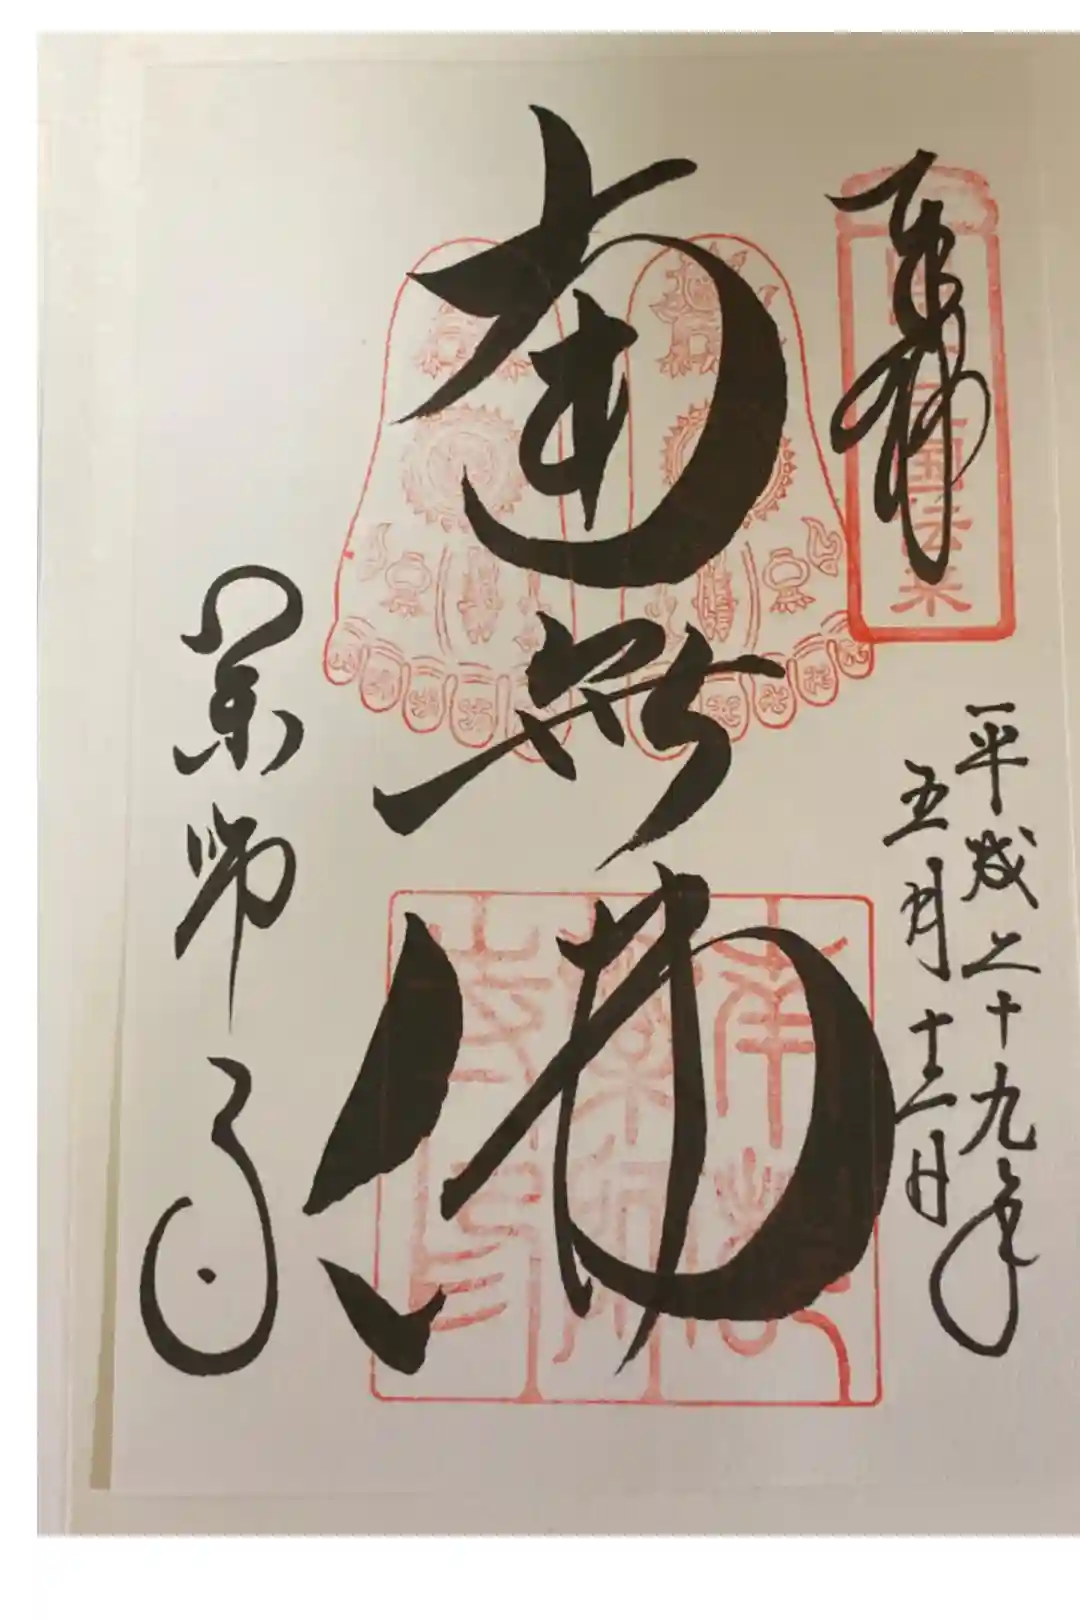 奉拝
三国伝来
平成二十九年
五月十二日
南無佛
薬師寺